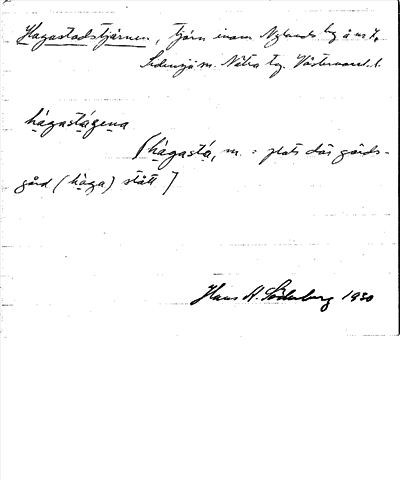 Hagastadstjärnen, tjärn inom Nylands by å ns
Sidensjö sn. Nätra tg. Västernorrl. l.
hagastágena
[hagastá, m. : plats där gärds-
gård (haga) stått]
Hans H. Söderberg 1930